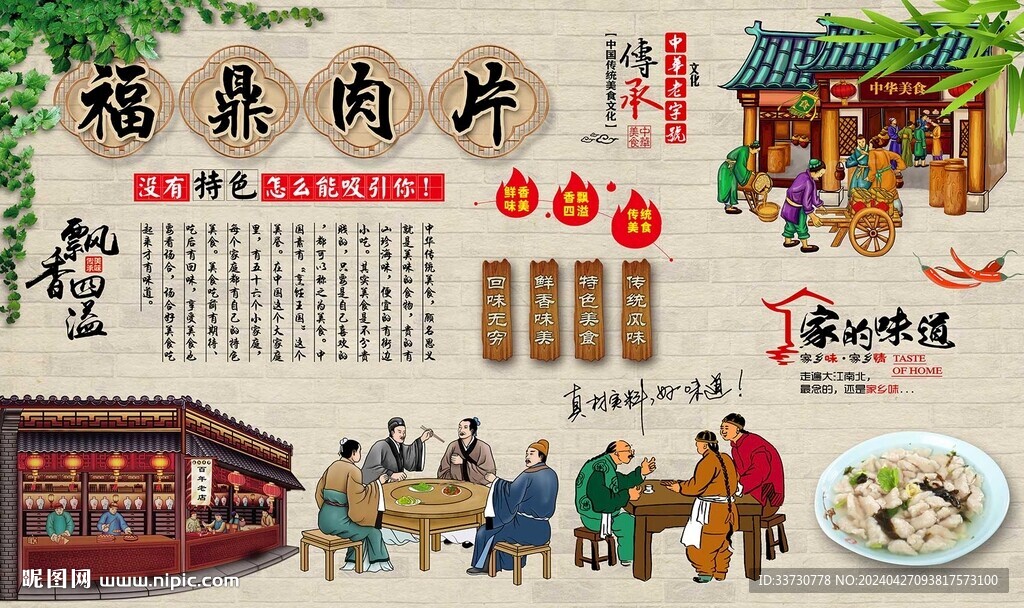 福鼎肉片
没有特色怎么能吸引你！
【中国传统美食文化】
傳承
中華美食
中华老字號
文化
中华美食
鲜香味美
香飘四溢
传统美食
飘香四溢
中华传统美食，顾名思义
就是美味的食物，贵的有
山珍海味，便宜的有街边
小吃。其实美食是不分贵
贱的，只要是自己喜欢的
，都可以称之为美食。中
国素有“烹饪王国”这个
美誉。在中国这个大家庭
里，有五十六个小家庭，
每个家庭都有自己的特色
美食。美食吃前有期待、
吃后有回味，享受美食也
要看场合，场合好美食吃
起来才有味道。
回味无穷
鲜香味美
特色美食
传统风味
家的味道
家乡味·家乡情
TASTE
OF HOME
走遍大江南北，
最念的，还是家乡味...
真材实料，好味道！
百年老店
昵图网 www.nipic.com
ID:33730778 NO:20240427093817573100